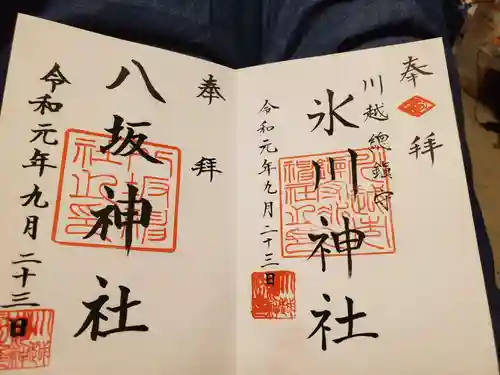 奉拝
川越總鎮守
氷川神社
令和元年九月二十三日
奉拝
八坂神社
令和元年九月二十三日